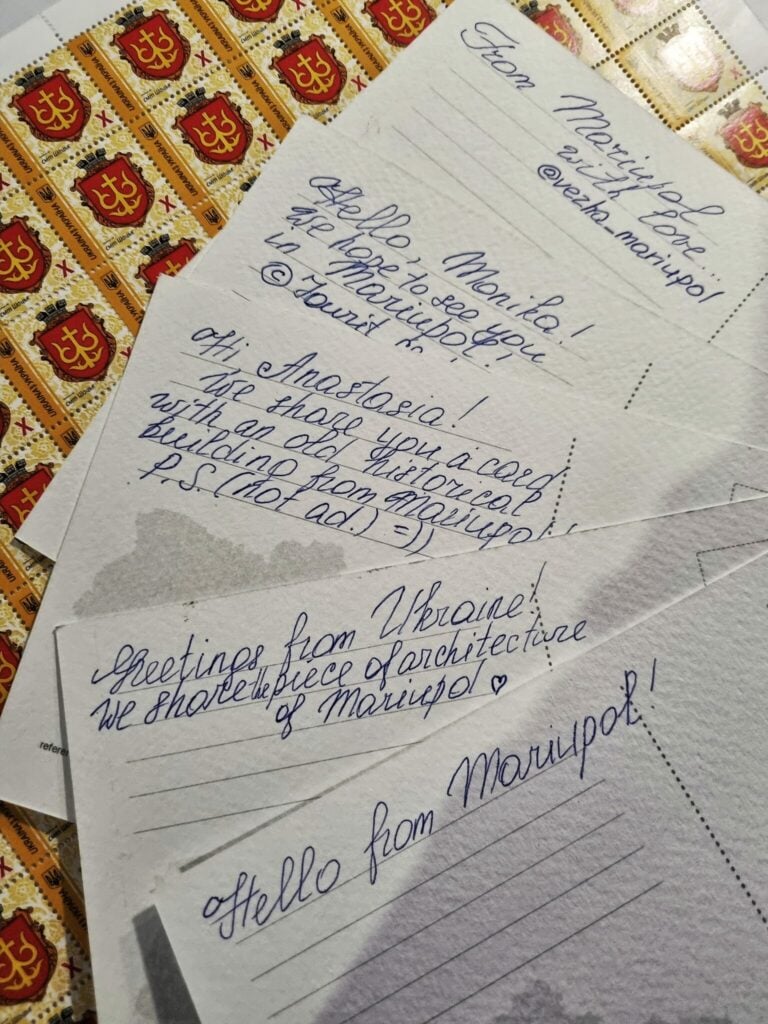 From Mariupol
with love...
@vezha_mariupol
Hello, Monika!
We hope to see you
in Mariupol!
Hi Anastasia!
We share you a card
with an old historical
building from Mariupol!
P.S. (not ad.) =))
Greetings from Ukraine!
We share the piece of architecture
of Mariupol ♥
Hello from Mariupol!
UKRAINE УКРАЇНА